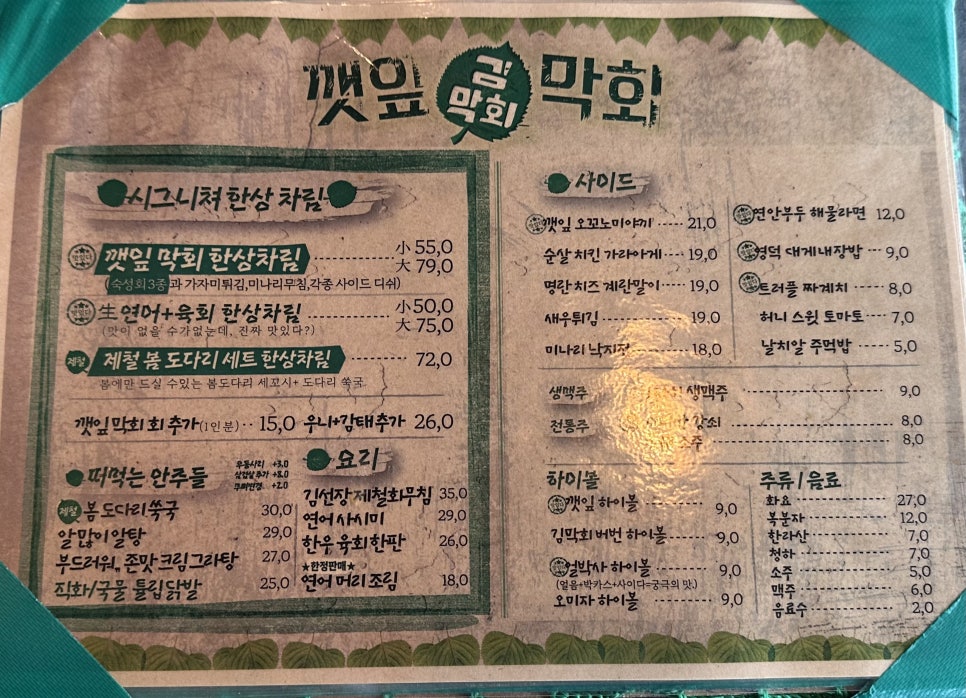 깻잎 김막회 막회
시그니쳐 한상 차림
깻잎 막회 한상차림 小 55,0
大 79,0
(숙성회3종과 가자미튀김,미나리무침,각종 사이드 디쉬)
生연어+육회 한상차림 小 50,0
大 75,0
(맛이 없을 수가없는데, 진짜 맛있다?)
제철 제철 봄 도다리 세트 한상차림 72,0
봄에만 드실 수있는 봄도다리 세꼬시+ 도다리 쑥국
깻잎막회 회 추가(1인분) 15,0 우니+감태추가 26,0
떠먹는 안주들
우동사리 +3,0
+8,0
+2,0
제철 봄 도다리쑥국 30,0
알 많이 알탕 29,0
부드러워, 존맛 크림그라탕 27,0
직화/국물 튤립닭발 25,0
요리
김선장 제철회무침 35,0
연어 사시미 29,0
한우 육회한판 26,0
★한정판매★
연어 머리 조림 18,0
사이드
깻잎 오꼬노미야끼 21,0
순살 치킨 가라아게 19,0
명란 치즈 계란말이 19,0
새우튀김 19,0
미나리 낙지전 18,0
연안부두 해물라면 12,0
영덕 대게내장밥 9,0
트러플 짜계치 8,0
허니 스윗 토마토 7,0
날치알 주먹밥 5,0
생맥주 생맥주 9,0
전통주 8,0
소주 8,0
하이볼
깻잎 하이볼 9,0
김막회 버번 하이볼 9,0
얼박사 하이볼 9,0
(얼음+박카스+사이다=궁극의 맛.)
오미자 하이볼 9,0
주류 / 음료
화요 27,0
복분자 12,0
한라산 7,0
청하 7,0
소주 5,0
맥주 6,0
음료수 2,0